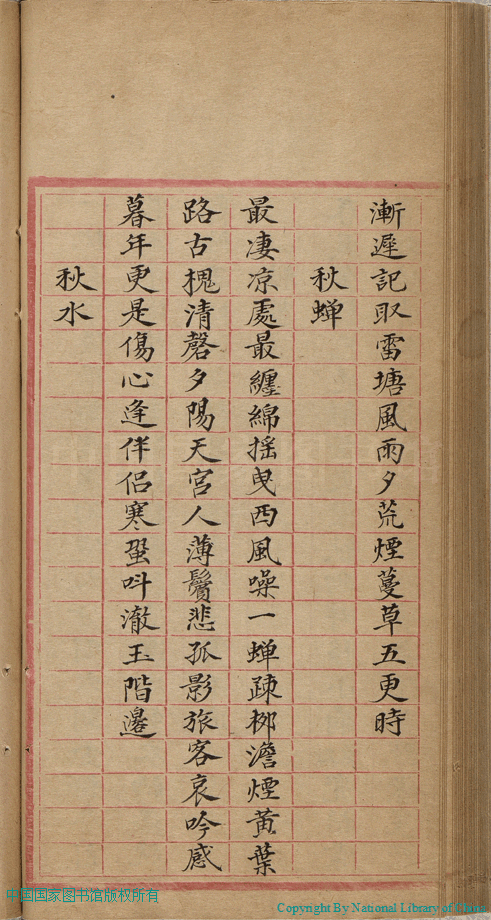 漸遲記取雷塘風雨夕荒煙蔓草五更時
秋蝉
最凄凉處最纏綿揺曳西風噪一蝉疎栁澹煙黄葉
路古槐清磬夕陽天宮人薄鬢悲孤影旅客哀吟感
暮年更是傷心逢伴侶寒蛩呌澈玉階邊
秋水
中国国家图书馆版权所有
Copyright By National Library of China